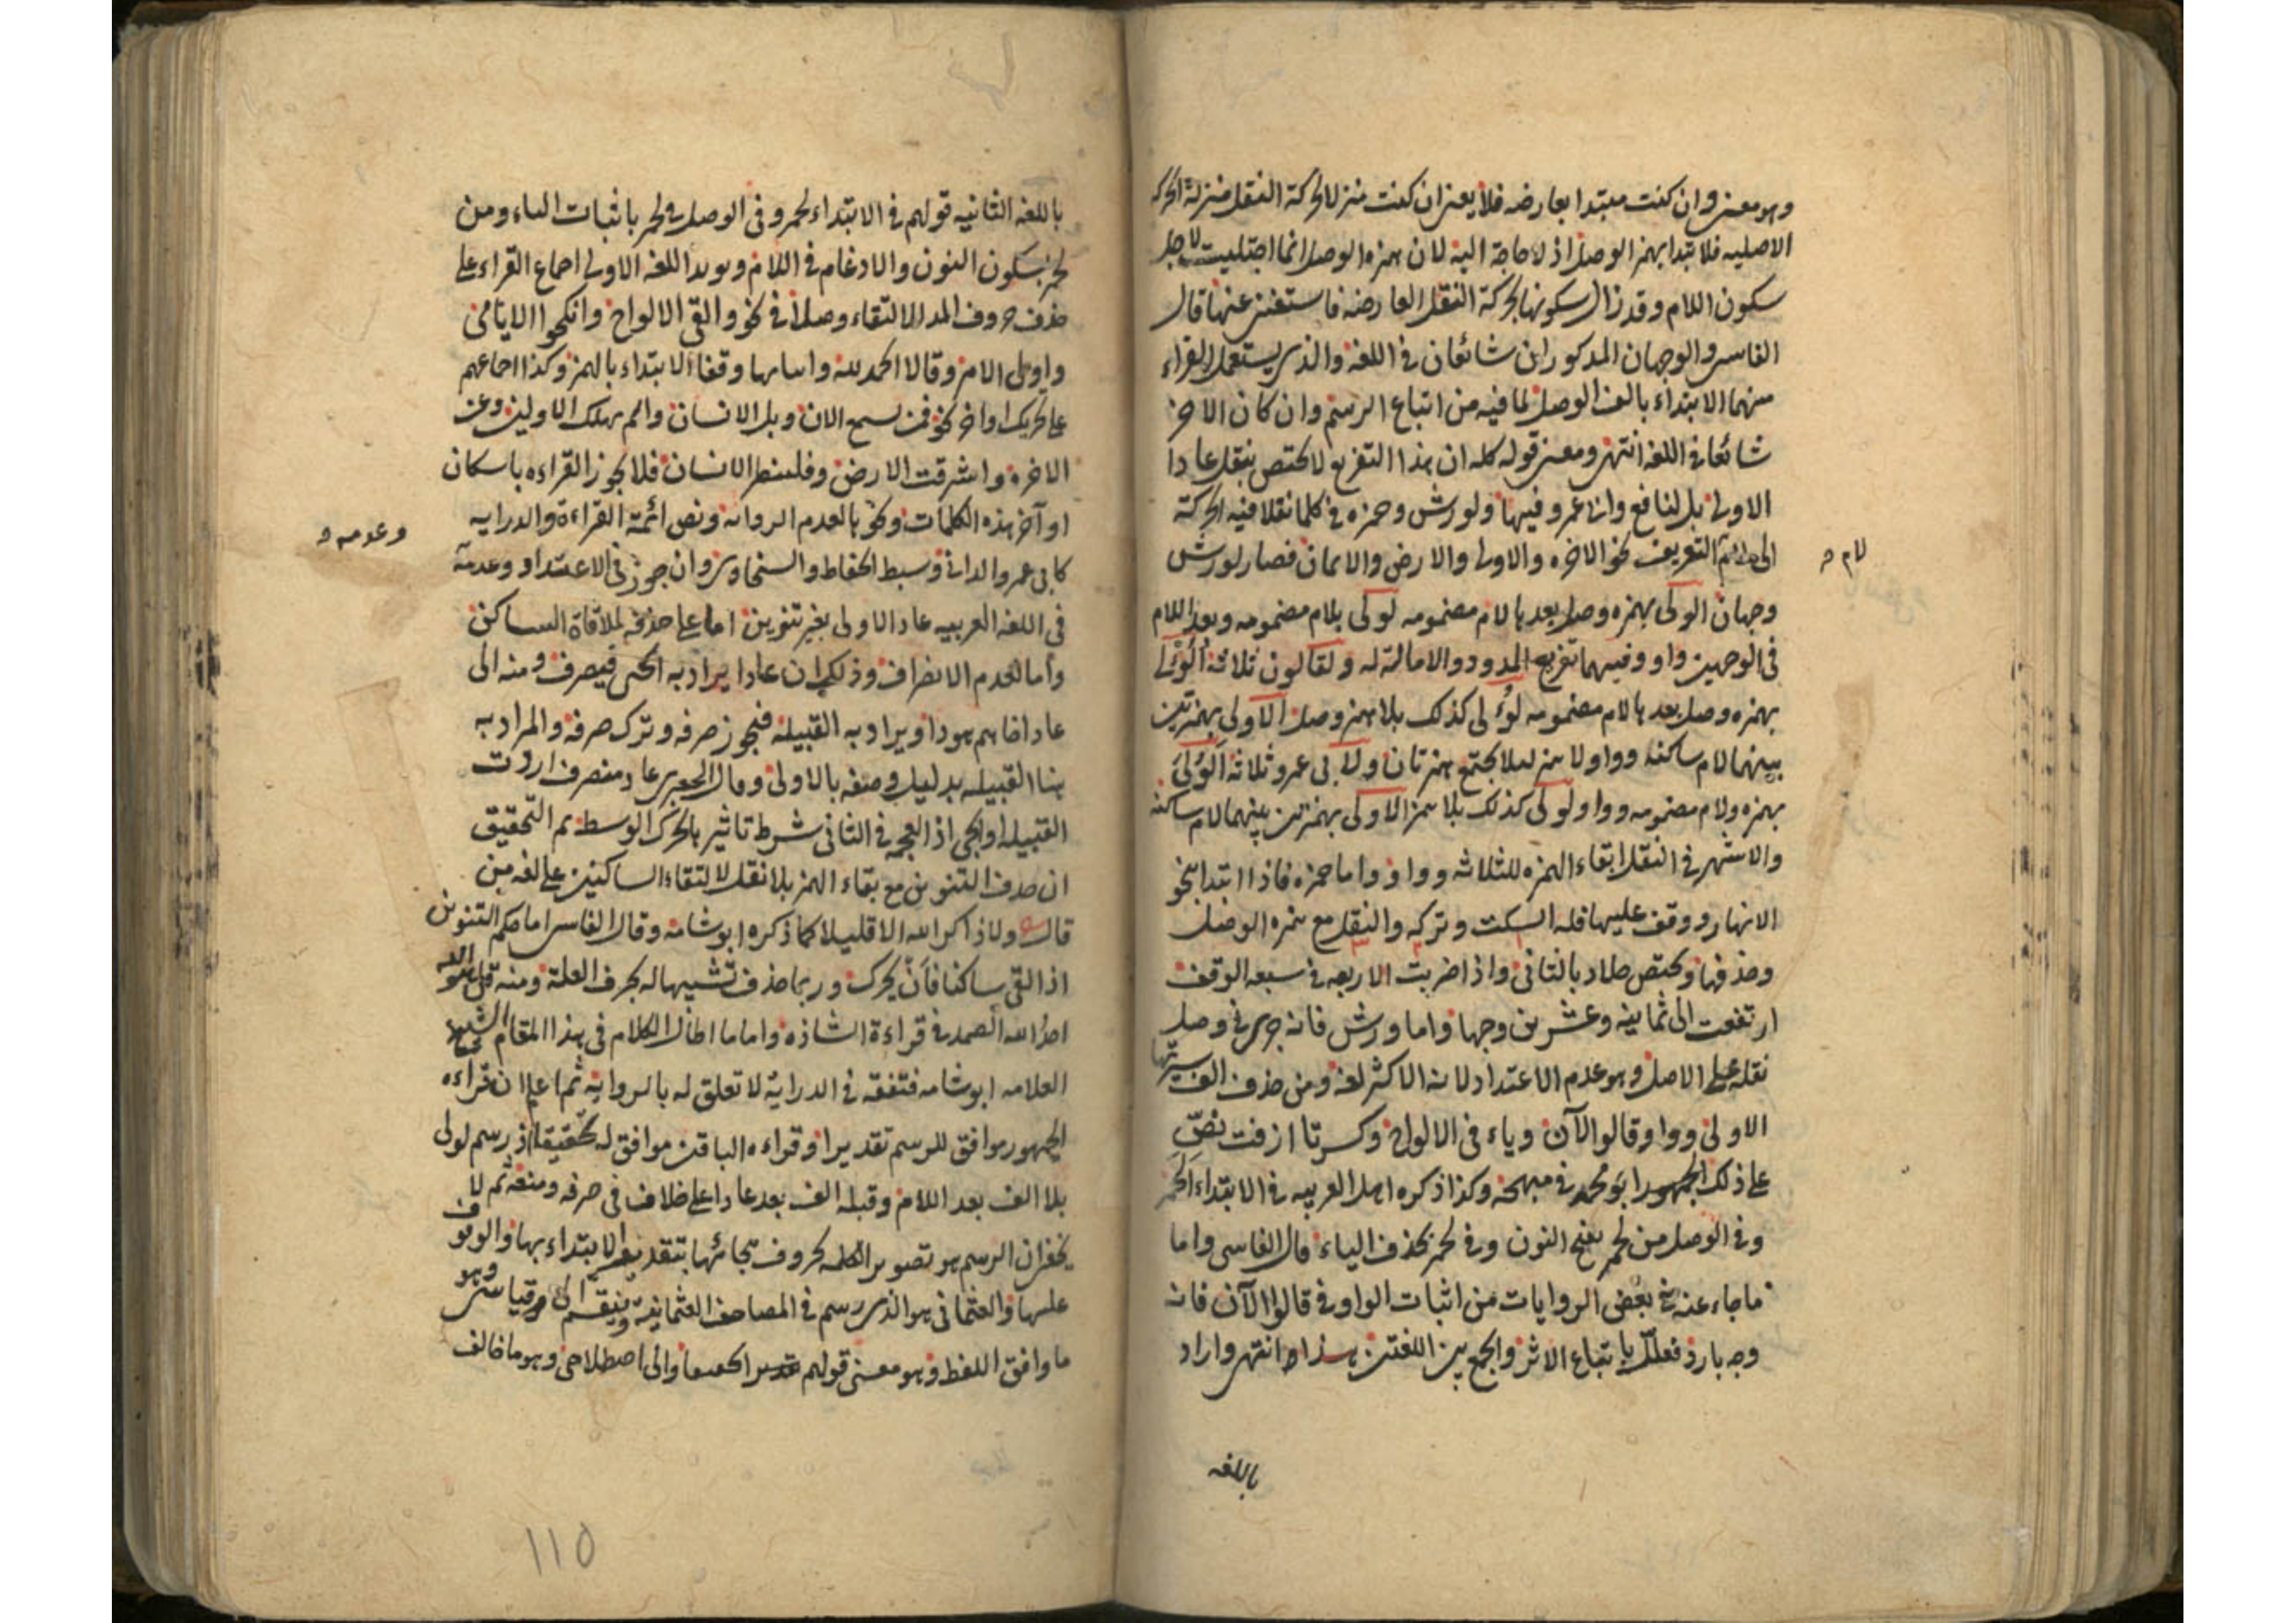 وهو معنى وان كنت مبتدا بعارضه فلا يعنى ان كنت منزلا لحركة النقل منزلة الحركة
الاصليه فلا تبدا بهمز الوصل اذ لا حاجة اليه لان همزه الوصل انما اجتلبت لاجل
سكون اللام وقد زال سكونها بحركة النقل العارضه فاستغنى عنها قال
الفاسى والوجهان المذكوران شائعان فى اللغة والذى يستعمل القراء
منهما الابتداء بالف الوصل لما فيه من اتباع الرسم وان كان الاخر
شائعا فى اللغة انتهى ومعنى قوله كله ان هذا التفريع لا يختص بنقل عادا
الاولى بل لنافع وابى عمرو فيها ولورش وحمزه فى كلما نقلا فيه الحركة
الى لام التعريف نحو الاخره والاولى والارض والايمان فصار لورش
لام
وجهان الولى بهمزه وصل بعدها لام مضمومه لولى بلام مضمومه وبعد اللام
فى الوجهين واو وفيهما تفريع المدود والامالة له ولقالون ثلاثة الؤلى
بهمزه وصل بعدها لام مضمومه لؤلى كذلك بلا همز وصل الاولى بهمزتين
بينهما لام ساكنه وواو لا همز لئلا يجتمع همزتان ولابى عمرو ثلاثة الولى
بهمزه ولام مضمومه وواو لولى كذلك بلا همز الاولى بهمزتين بينهما لام ساكنه
والاشهر فى النقل ابقاء الهمزه للثلاثه وواو واما حمزه فاذا ابتدا بنحو
الانهار ووقف عليها فله السكت وتركه والنقل مع همزه الوصل
وحذفها ويختص خلاد بالثانى واذا ضربت الاربعه فى سبعه الوقف
ارتفعت الى ثمانيه وعشرين وجها واما ورش فانه جرى فى وصل
نقله على الاصل وهو عدم الاعتداد لانه الاكثر لغة ومن حذف الف سيرتها
الاولى وواو قالوا الآن وياء فى الالواح وكسر تا ازفت نص
على ذلك الجمهور ابو محمد فى مبهجه وكذا ذكره اهل العربيه فى الابتداء الحمر
وفى الوصل من لحمر بفتح النون وفى لحمر بحذف الياء قال الفاسى واما
ما جاء عنه فى بعض الروايات من اثبات الواو فى قالوا الآن فانه
وجه بارز فعلل باتباع الاثر والجمع بين اللغتين هذا انتهى واراد
باللغه
باللغه الثانيه قولهم فى الابتداء لحمر وفى الوصل فى لحمر باثبات الياء ومن
لحمر بسكون النون والادغام فى اللام ويويد اللغه الاولى اجماع القراء على
حذف حروف المد للالتقاء وصلا فى نحو والقى الالواح وانكحوا الايامى
واولى الامر وقالا الحمد لله واسابها وقفا الابتداء بالهمز وكذا اجماعهم
على تحريك اواخر نحو فمن يستمع الان وبل الانسان والم نهلك الاولين وعن
الاخره واشرقت الارض وفلينظر الانسان فلا يجوز القراءه باسكان
اواخر هذه الكلمات ونحوها لعدم الروايه ونص ائمة القراءة والدرايه
كابى عمرو الدانى وسبط الخفاط والسخاوى وان جوز فى الاعتداد وعدمه
وعدمه
فى اللغه العربيه عاد الاولى بغير تنوين اما على حذفه لملاقاة الساكن
واما لعدم الانصراف وذلك ان عادا يراد به الحى فيصرف ومنه الى
عاد اخاهم هودا ويراد به القبيله فيجوز صرفه وترك صرفه والمراد به
هنا القبيله بدليل وصفه بالاولى وقال الجعبرى عاد منصرف اردت
القبيله او الحى اذ العجمه فى الثانى شرط تاثيرها تحرك الوسط ثم التحقيق
ان حذف التنوين مع بقاء الهمز بلا نقل لالتقاء الساكنين على لغه من
قال ولا ذاكر الله الا قليلا كما ذكره ابو شامه وقال الفاسى اما حكم التنوين
اذا لقى ساكنا فان يحرك وربما حذف تشبيها له بحرف العلة ومنه قل هو الله
احد الله الصمد فى قراءة الشاذه واما ما اطال الكلام فى هذا المقام الشيخ
العلامه ابو شامه فتفقه فى الدراية لا تعلق له بالروايه ثم اعلم ان قراءه
الجمهور موافق للرسم تقديرا وقراءه الباقين موافق له تحقيقا اذ رسم لولى
بلا الف بعد اللام وقبله الف بعد عادا على خلاف فى صرفه ومنعه ثم لا
يخفى ان الرسم هو تصوير الكلمه بحروف هجائها بتقدير الابتداء بها والوقوف
عليها والعثمانى هو الذى رسم فى المصاحف العثمانيه وينقسم الى قياسى وهو
ما وافق اللفظ وهو معنى قولهم تقديرا تحقيقا والى اصطلاحى وهو ما خالف
110